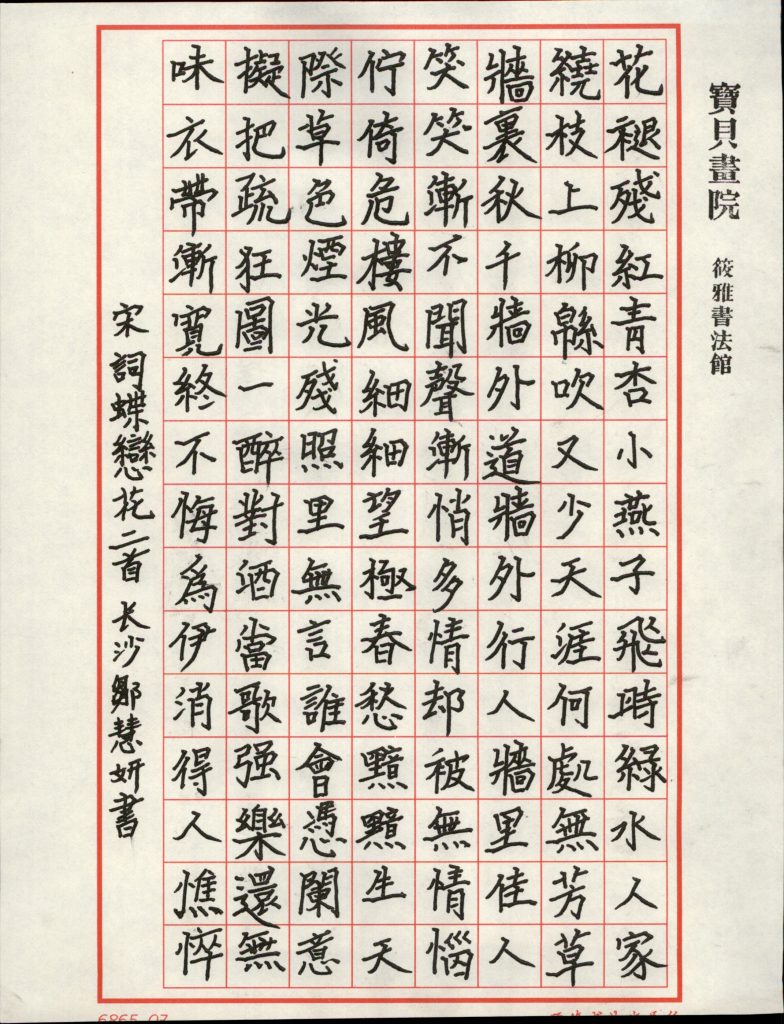 寶貝畫院 筱雅書法館
花褪殘紅青杏小燕子飛時緑水人家
繞枝上柳緜吹又少天涯何處無芳草
牆裏秋千牆外道牆外行人牆里佳人
笑笑漸不聞聲漸悄多情却被無情惱
佇倚危樓風細細望極春愁黯黯生天
際草色煙光殘照里無言誰會憑闌意
擬把疏狂圖一醉對酒當歌强樂還無
味衣帶漸寬終不悔爲伊消得人憔悴
宋詞蝶戀花二首 长沙鄒慧妍書